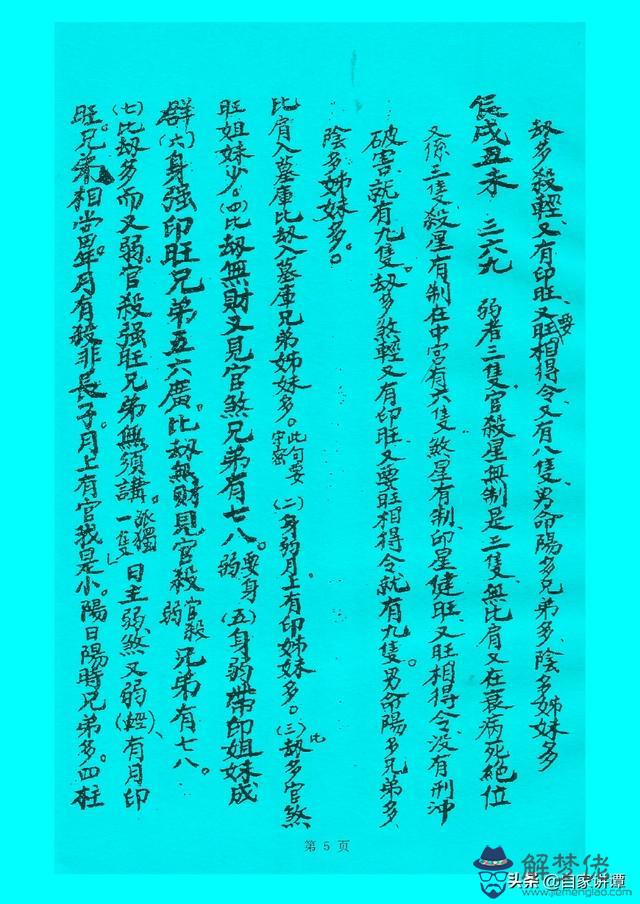 劫多殺輕、又有印旺、又要旺相得令、又有八隻、男命陽多兄弟多、陰多姊妹多
辰戌丑未 三六九 弱者三隻、官殺星無制是三隻、無比肩又在衰病死絕位
又係三隻、殺星有制在中字有六隻、煞星有制、印星健旺、又旺相得令、没有刑沖
破害、就有九隻。劫多煞輕又有印旺、又要旺相得令就有九隻。男命陽多兄弟多、
陰多姊妹多。
比肩入墓庫比劫入墓庫兄弟姊妹多。此句要守密 (二)身弱月上有印姊妹多。(三)比劫多官煞
旺姐妹少。(四)比劫無財又見官煞兄弟有七八。要身弱 (五)身弱帶印姐妹成
群(六)身强印旺兄弟五六廣。比劫無财見官殺 官殺弱 兄弟有七八。
(七)比劫多而又弱。官殺强旺兄弟無須講。派獨一隻 日主弱煞又弱(輕)、有月印
旺。兄弟相當。年月有殺非長子。月上有官我是小。陽日陽時兄弟多。四柱
第 5 页
解梦佬
www.jiemenglao.com
头条 @自家讲谭